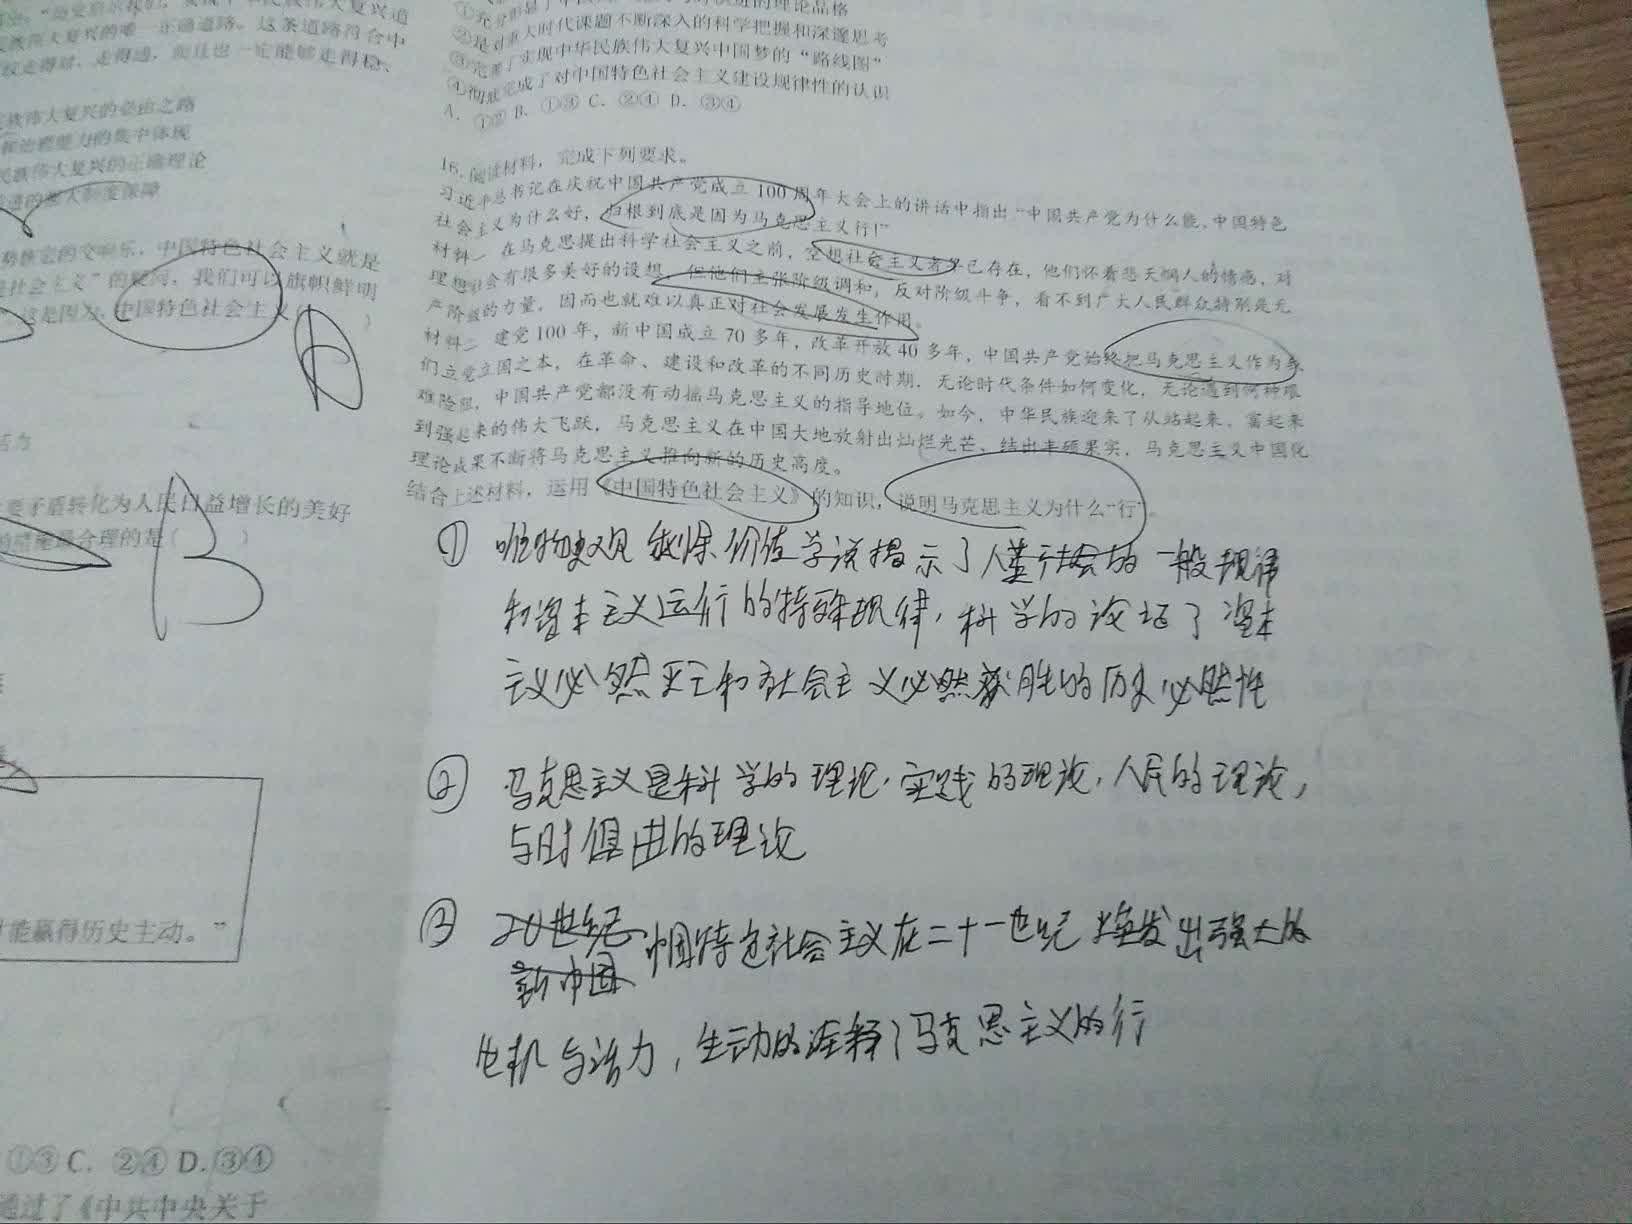 族伟大复兴的唯一正确道路。这条道路符合中
走得对、走得通，而且也一定能够走得稳、
族伟大复兴的必由之路
和治理能力的集中体现
民族伟大复兴的正确理论
进的强大制度保障
中国特色社会主义就是
社会主义”的疑问，我们可以旗帜鲜明
这是因为，中国特色社会主义（ ）
D
要矛盾转化为人民日益增长的美好
的措施最合理的是（ ）
B
才能赢得历史主动。”
①③ C. ②④ D. ③④
通过了《中共中央关于
的理论品格
②是对重大时代课题不断深入的科学把握和深邃思考
③完善了实现中华民族伟大复兴中国梦的“路线图”
④彻底完成了对中国特色社会主义建设规律性的认识
A. ①② B. ①③ C. ②④ D. ③④
16. 阅读材料，完成下列要求。
习近平总书记在庆祝中国共产党成立 100 周年大会上的讲话中指出“中国共产党为什么能，中国特色
社会主义为什么好，归根到底是因为马克思主义行!”
材料一 在马克思提出科学社会主义之前，空想社会主义者早已存在，他们怀着悲天悯人的情感，对
理想社会有很多美好的设想，但他们主张阶级调和，反对阶级斗争，看不到广大人民群众特别是无
产阶级的力量，因而也就难以真正对社会发展发生作用。
材料二 建党 100 年，新中国成立 70 多年，改革开放 40 多年，中国共产党始终把马克思主义作为我
们立党立国之本，在革命、建设和改革的不同历史时期，无论时代条件如何变化，无论遇到何种艰
难险阻，中国共产党都没有动摇马克思主义的指导地位。如今，中华民族迎来了从站起来、富起来
到强起来的伟大飞跃，马克思主义在中国大地放射出灿烂光芒、结出丰硕果实，马克思主义中国化
理论成果不断将马克思主义推向新的历史高度。
结合上述材料，运用《中国特色社会主义》的知识，说明马克思主义为什么“行”。
① 唯物史观 剩余价值学说揭示了人类社会的一般规律
和资本主义运行的特殊规律，科学的论证了资本
主义必然灭亡和社会主义必然获胜的历史必然性
② 马克思主义是科学的理论，实践的理论，人民的理论，
与时俱进的理论
③ 20世纪 中国特色社会主义在二十一世纪焕发出强大的
新中国
生机与活力，生动的诠释了马克思主义的行